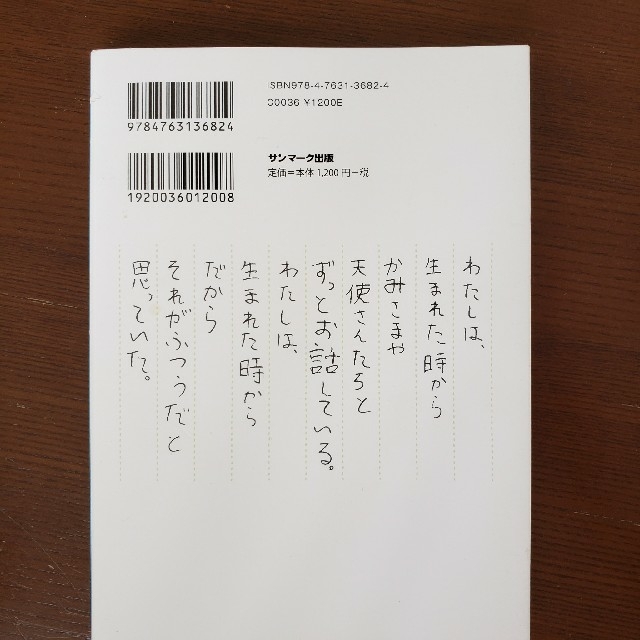 ISBN978-4-7631-3682-4
C0036 ¥1200E
9784763136824
サンマーク出版
定価=本体 1,200 円-税
1920036012008
わたしは、
生まれた時から
かみさまや
天使さんたちと
ずっとお話している。
わたしは、
生まれた時から
だから
それがふつうだと
思っていた。